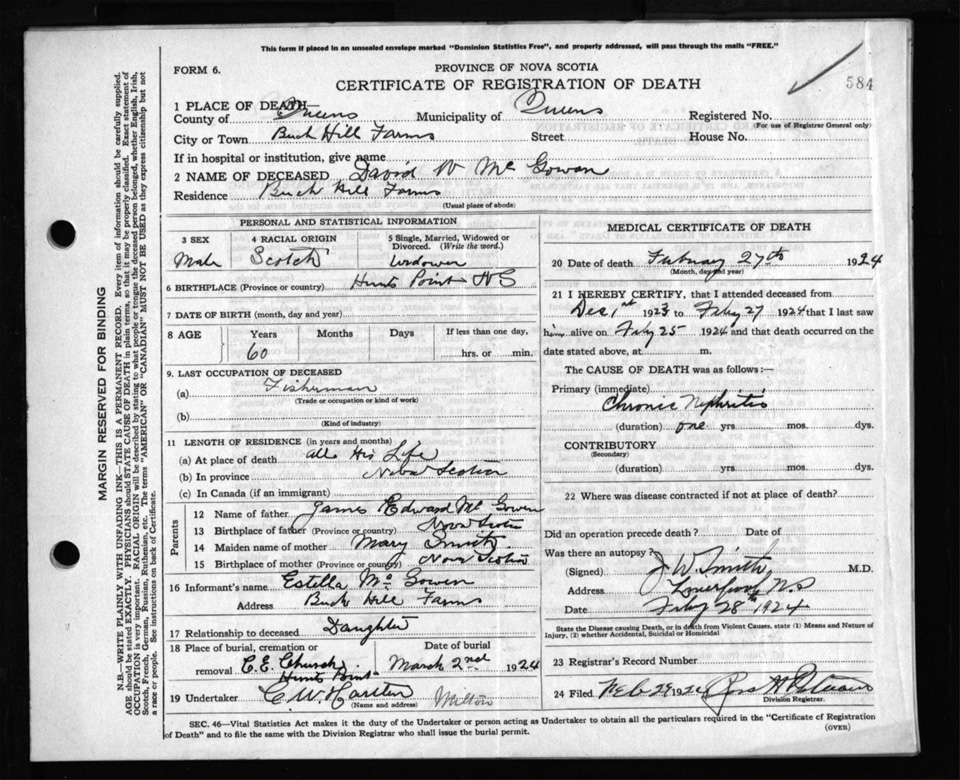 This form if placed in an unsealed envelope marked "Dominion Statistics Free", and properly addressed, will pass through the mails "FREE."
FORM 6.
PROVINCE OF NOVA SCOTIA
CERTIFICATE OF REGISTRATION OF DEATH
584
1 PLACE OF DEATH—
County of Queens Municipality of Queens Registered No.
(For use of Registrar General only)
City or Town Buck Hill Farms Street House No.
If in hospital or institution, give name
2 NAME OF DECEASED David W McGowen
Residence Buck Hill Farms
(Usual place of abode)
PERSONAL AND STATISTICAL INFORMATION
3 SEX
Male
4 RACIAL ORIGIN
Scotch
5 Single, Married, Widowed or Divorced. (Write the word.)
Widower
6 BIRTHPLACE (Province or country) Hunts Point NS
7 DATE OF BIRTH (month, day and year)
8 AGE Years Months Days If less than one day,
60 hrs. or min.
9. LAST OCCUPATION OF DECEASED
(a) Fisherman
(Trade or occupation or kind of work)
(b)
(Kind of industry)
11 LENGTH OF RESIDENCE (in years and months)
(a) At place of death all His Life
(b) In province Nova Scotia
(c) In Canada (if an immigrant)
Parents
12 Name of father James Edward McGowen
13 Birthplace of father (Province or country) Nova Scotia
14 Maiden name of mother Mary
15 Birthplace of mother (Province or country) Nova Scotia
16 Informant's name Estella McGowen
Address Buck Hill Farms
17 Relationship to deceased Daughter
18 Place of burial, cremation or removal C.E. Church Hunts Point
Date of burial
March 2nd 1924
19 Undertaker C.W. Milton
(Name and address)
MEDICAL CERTIFICATE OF DEATH
20 Date of death February 27th 1924
(Month, day and year)
21 I HEREBY CERTIFY, that I attended deceased from
Dec 1st 1923 to Feby 27 1924 that I last saw
him alive on Feby 25 1924 and that death occurred on the
date stated above, at m.
The CAUSE OF DEATH was as follows:—
Primary (immediate)
Chronic Nephritis
(duration) one yrs. mos. dys.
CONTRIBUTORY
(Secondary)
(duration) yrs. mos. dys.
22 Where was disease contracted if not at place of death?
Did an operation precede death? Date of
Was there an autopsy?
(Signed) J W Smith, M.D.
Address Liverpool, N.S
Date Feby 28th 1924
State the Disease causing Death, or in death from Violent Causes, state (1) Means and Nature of
Injury, (2) whether Accidental, Suicidal or Homicidal
23 Registrar's Record Number
24 Filed Feb 29 1924
Division Registrar.
SEC. 46—Vital Statistics Act makes it the duty of the Undertaker or person acting as Undertaker to obtain all the particulars required in the "Certificate of Registration
of Death" and to file the same with the Division Registrar who shall issue the burial permit.
(OVER)
MARGIN RESERVED FOR BINDING
N.B.—WRITE PLAINLY WITH UNFADING INK—THIS IS A PERMANENT RECORD. Every item of information should be carefully supplied.
AGE should be stated EXACTLY. PHYSICIANS should STATE CAUSE OF DEATH in plain terms, so that it may be properly classified. Exact statement of
OCCUPATION is very important. RACIAL ORIGIN will be described by stating to what people or tongue the deceased person belonged, whether English, Irish,
Scotch, French, German, Russian, Ruthenian, etc. The terms "AMERICAN" or "CANADIAN" MUST NOT BE USED as they express citizenship but not
a race or people. See instructions on back of Certificate.